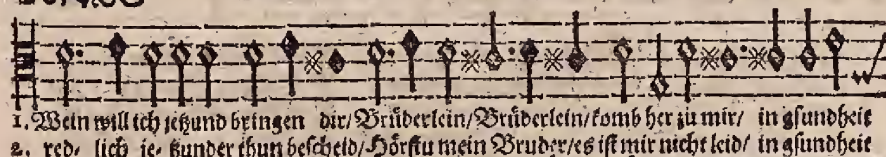 1. Wein will ich jetzund bringen dir/ Brüderlein/ Brüderlein/ komb her zu mir/ in gsundheit
2. red- lich je- tzunder thun bescheid/ Hörstu mein Bruder/ es ist mir nicht leid/ in gsundheit